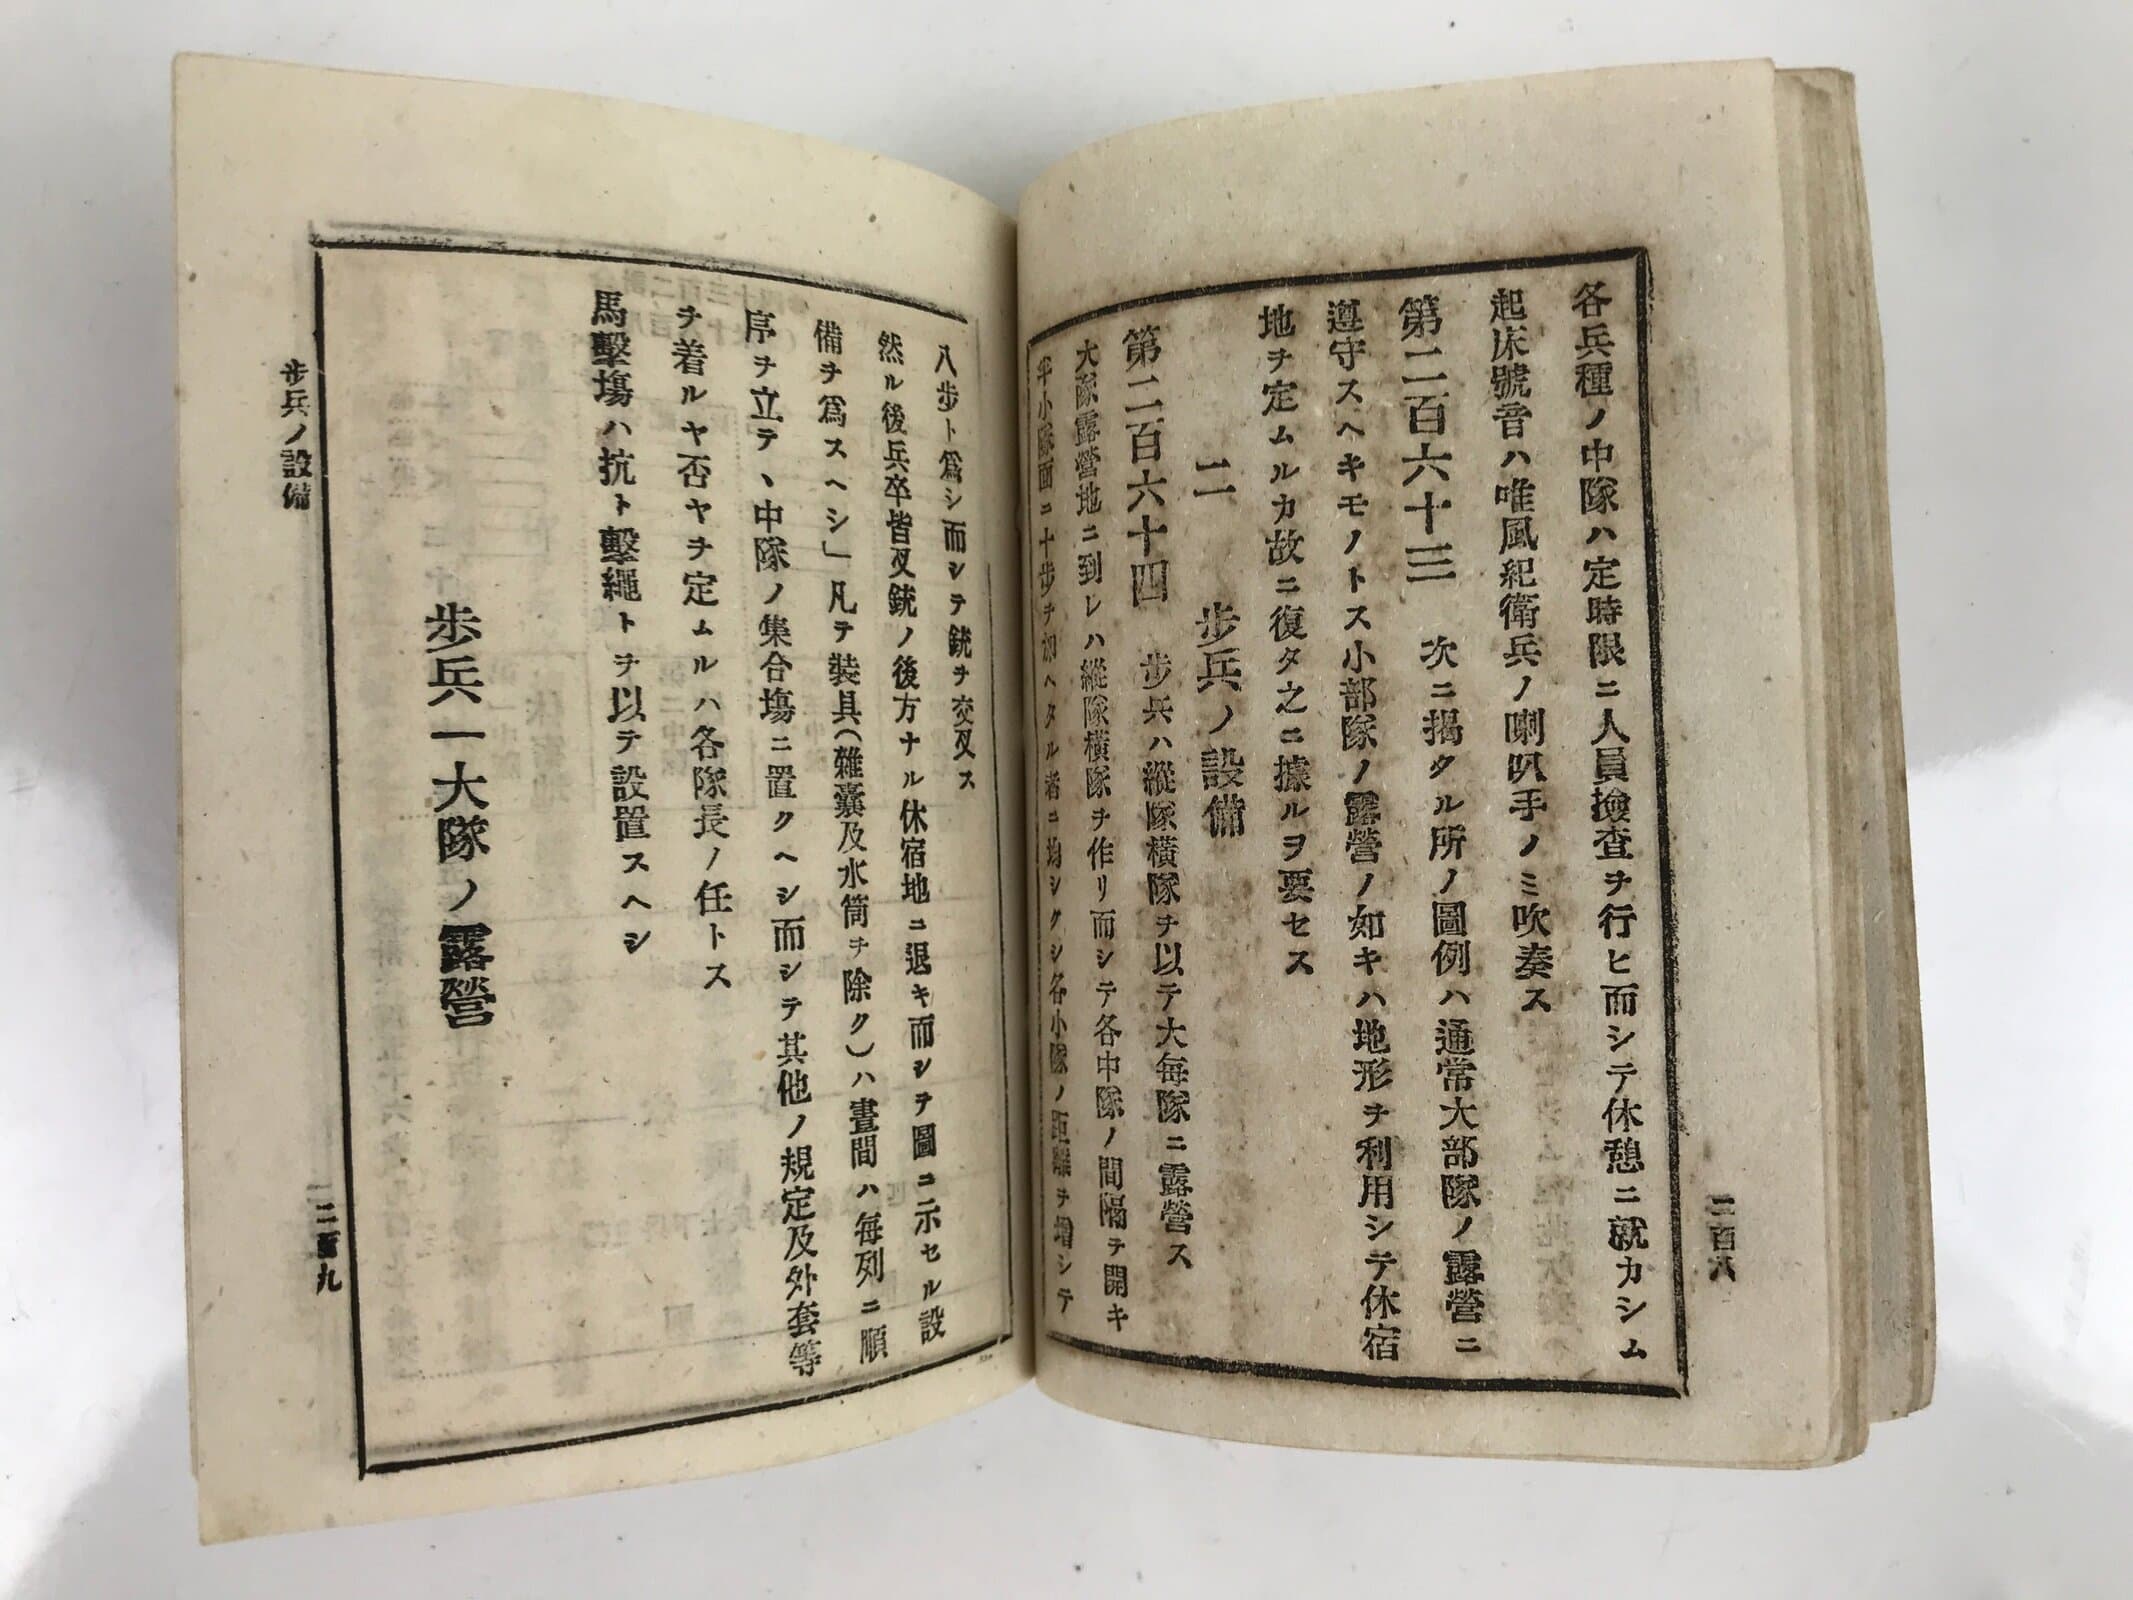 各兵種ノ中隊ハ定時限ニ人員撿査ヲ行ヒ而シテ休憩ニ就カシム
起床號音ハ唯風紀衛兵ノ喇叭手ノミ吹奏ス
第二百六十三 次ニ揭クル所ノ圖例ハ通常大部隊ノ露營ニ
遵守スヘキモノトス小部隊ノ露營ノ如キハ地形ヲ利用シテ休宿
地ヲ定ムルカ故ニ復タ之ニ據ルヲ要セス
二 步兵ノ設備
第二百六十四 步兵ハ縱隊橫隊ヲ以テ大每隊ニ露營ス
大隊露營地ニ到レハ縱隊橫隊ヲ作リ而シテ各中隊ノ間隔ヲ開キ
半小隊面ニ十步ヲ加ヘタル者ニ均シクシ各小隊ノ距離ヲ增シテ
二百八
八步ト爲シ而シテ銃ヲ交叉ス
然ル後兵卒皆叉銃ノ後方ナル休宿地ニ退キ而シテ圖ニ示セル設
備ヲ爲スヘシ」凡テ裝具(雜囊及水筒ヲ除ク)ハ晝間ハ每列ニ順
序ヲ立テ、中隊ノ集合塲ニ置クヘシ而シテ其他ノ規定及外套等
ヲ着ルヤ否ヤヲ定ムルハ各隊長ノ任トス
馬擊塲ハ抗ト擊繩トヲ以テ設置スヘシ
步兵一大隊ノ露營
步兵ノ設備
二百九